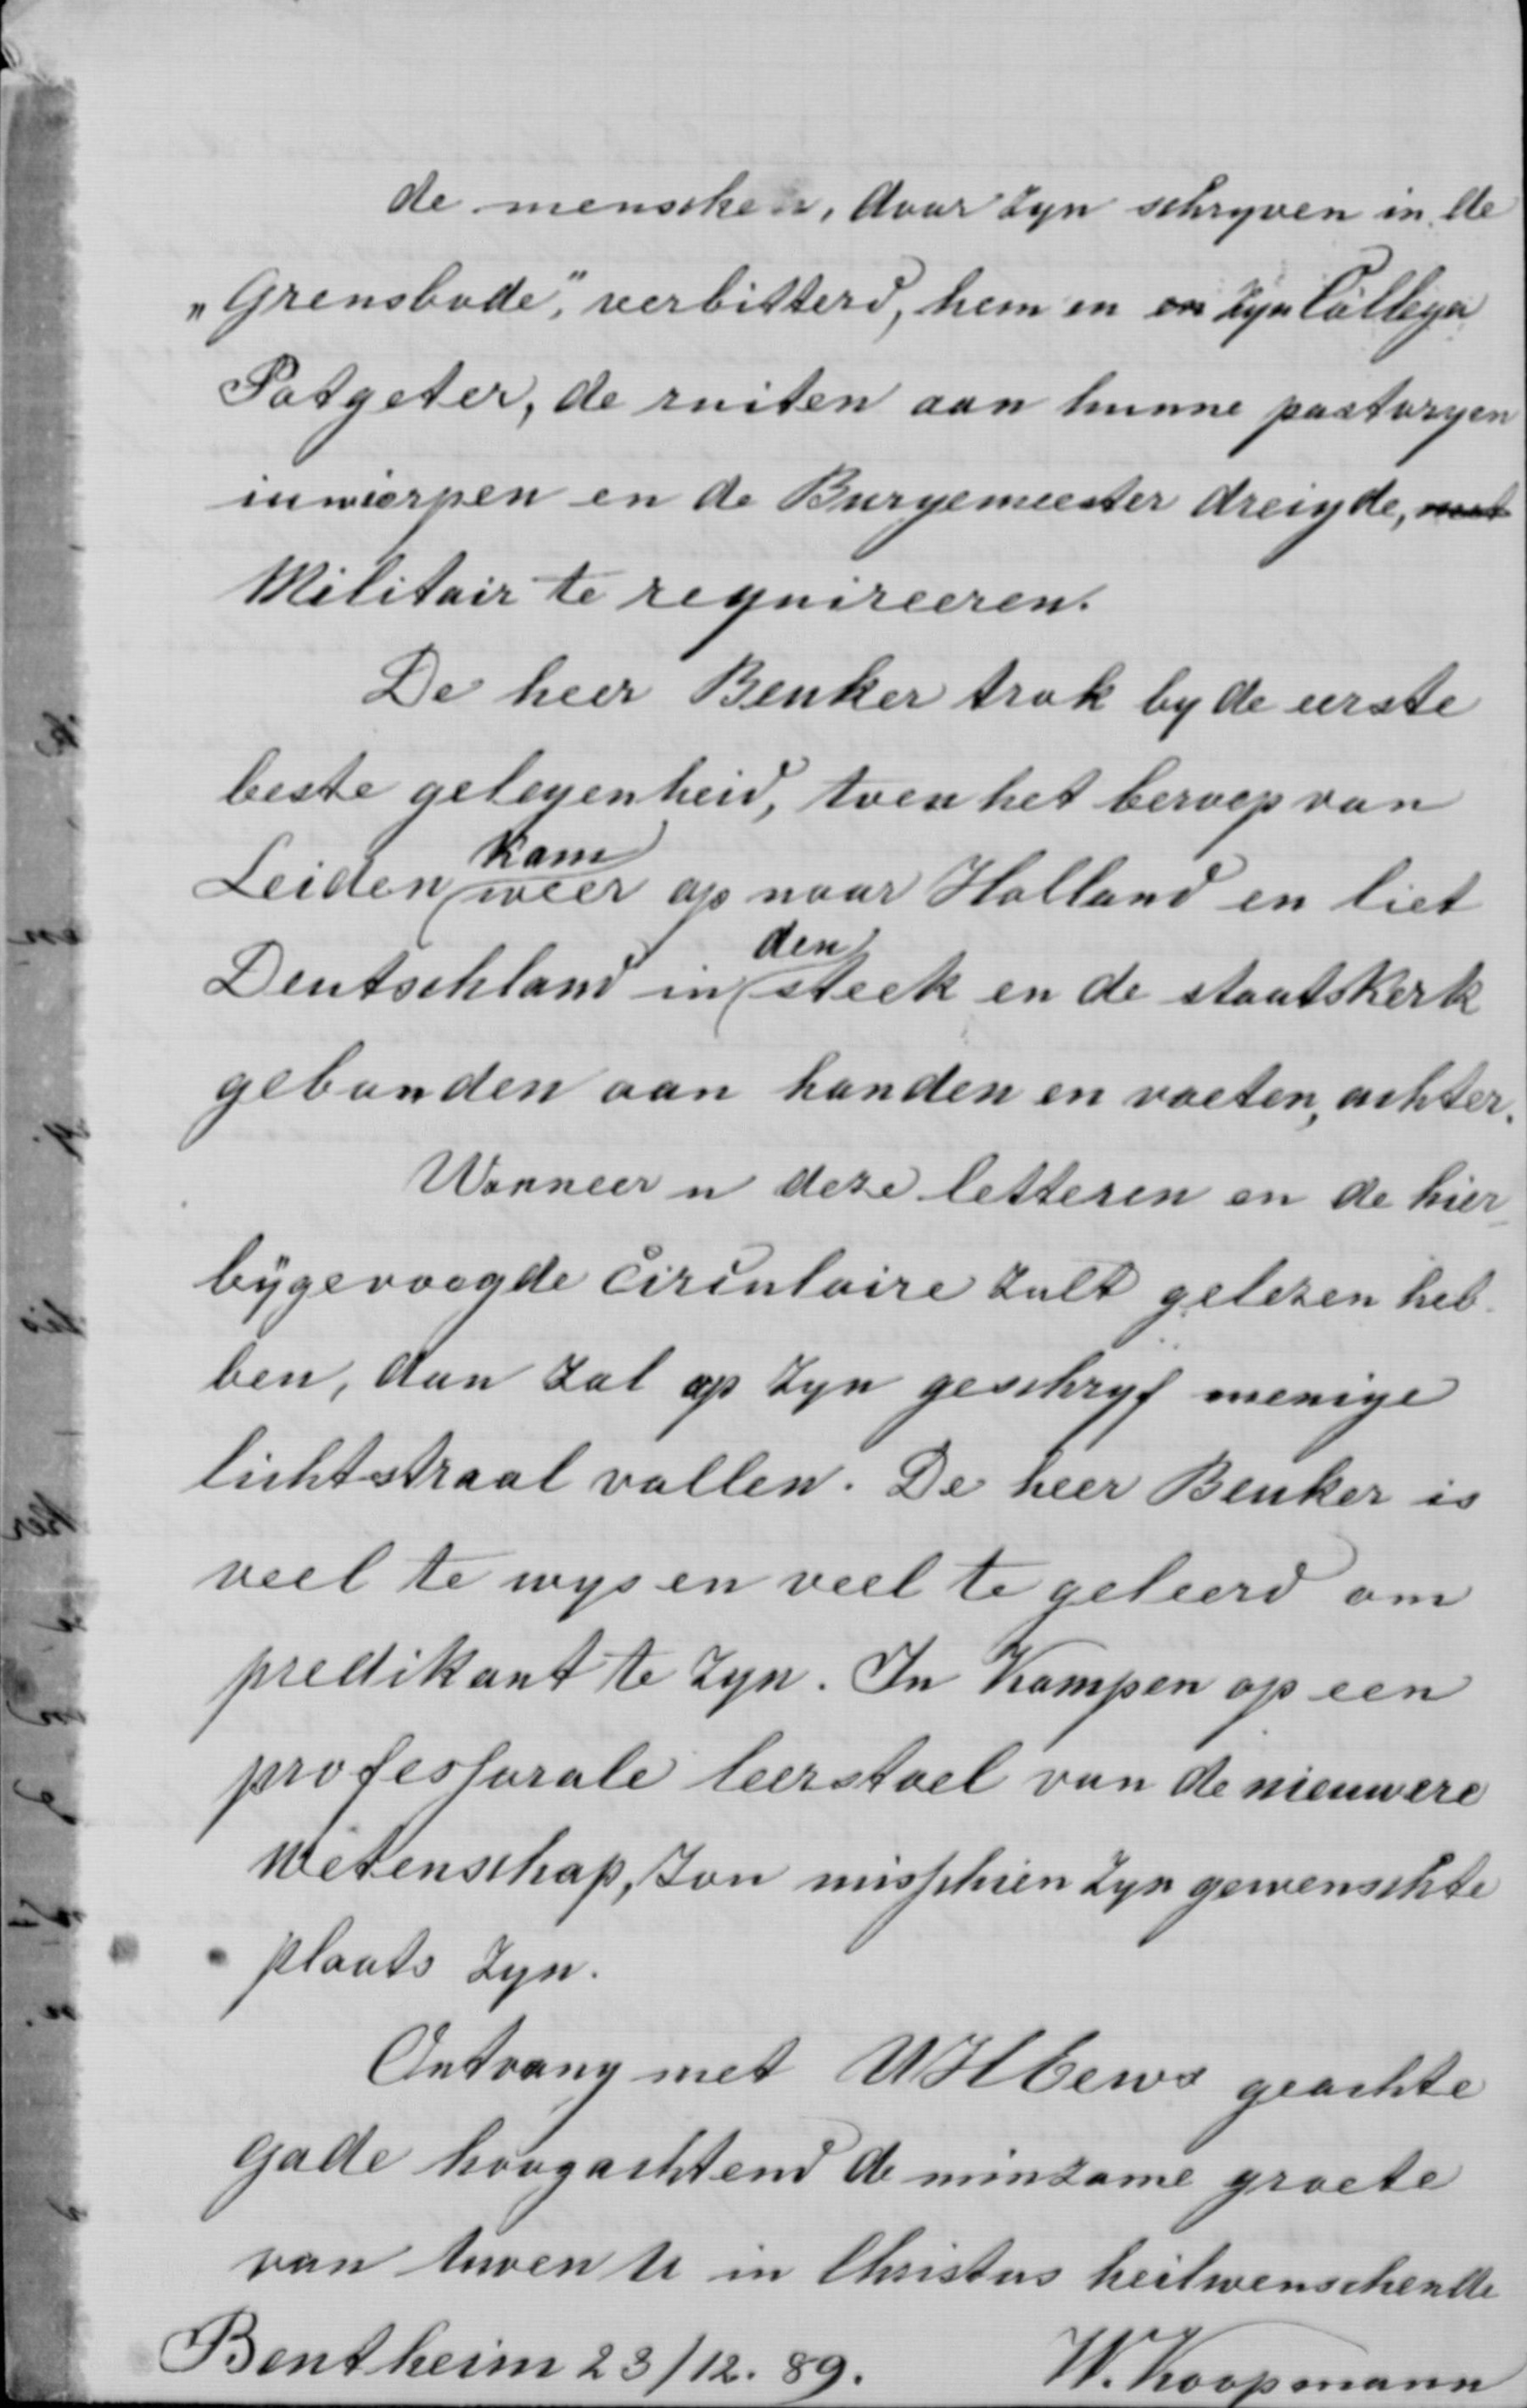 de menschen, door zyn schryven in de
„Grensbode", verbitterd, hem en en zyn Collega
Potgeter, de ruiten aan hunne pastoryen
inwierpen en de Burgemeester dreigde, met
Militair te requireeren.
De heer Beuker trok by de eerste
beste gelegenheid, toen het beroep van
Leiden kam weer op naar Holland en liet
Deutschland in den steek en de staatskerk
gebonden aan handen en voeten, achter.
Wanneer u deze letteren en de hier-
bÿgevoegde Circulaire zult gelezen heb-
ben, dan zal op zyn geschryf menige
lichtstraal vallen. De heer Beuker is
veel te wys en veel te geleerd om
predikant te zyn. In Kampen op een
professorale leerstoel van de nieuwere
wetenschap, zou misschien zyn gewenschte
plaats zyn.
Ontvang met geachte
gade hoogachtend de minzame groete
van Uwen U in Christus heilwenschende
Bentheim 23/12. 89. W. Koopmann